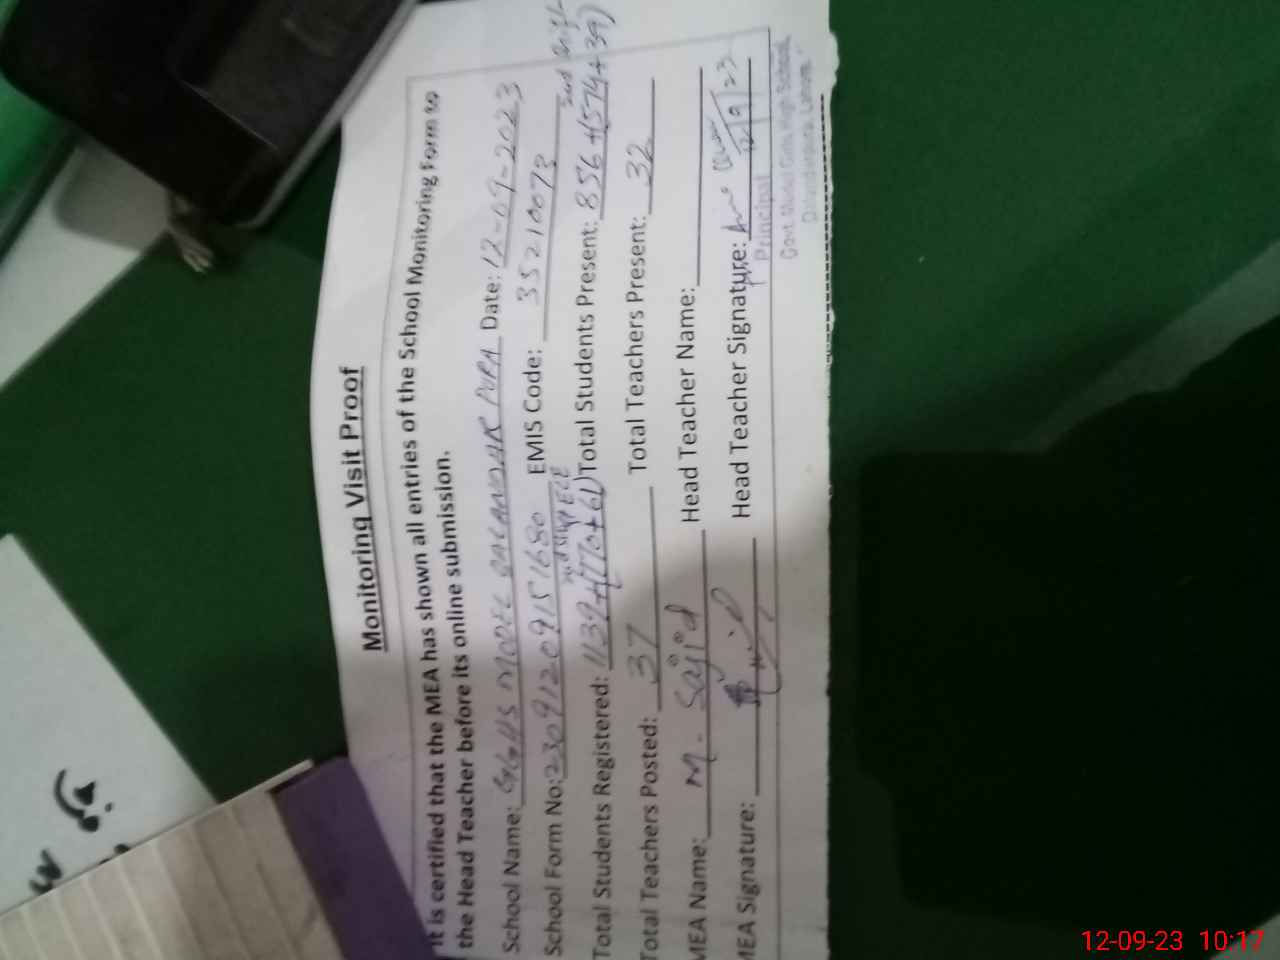 Monitoring Visit Proof
It is certified that the MEA has shown all entries of the School Monitoring Form to
the Head Teacher before its online submission.
School Name: GGHS MODEL QALANDAR PURA Date: 12-09-2023
School Form No: 23091209151680 EMIS Code: 35210073
2nd Shift ECE 2nd Shift
Total Students Registered: 1139+(770+61) Total Students Present: 856+(574+39)
Total Teachers Posted: 37 Total Teachers Present: 32
MEA Name: M. Sajid Head Teacher Name:
MEA Signature: Head Teacher Signature: 12/9/23
Principal
Govt. Model Girls High School,
Lahore.
12-09-23 10:17